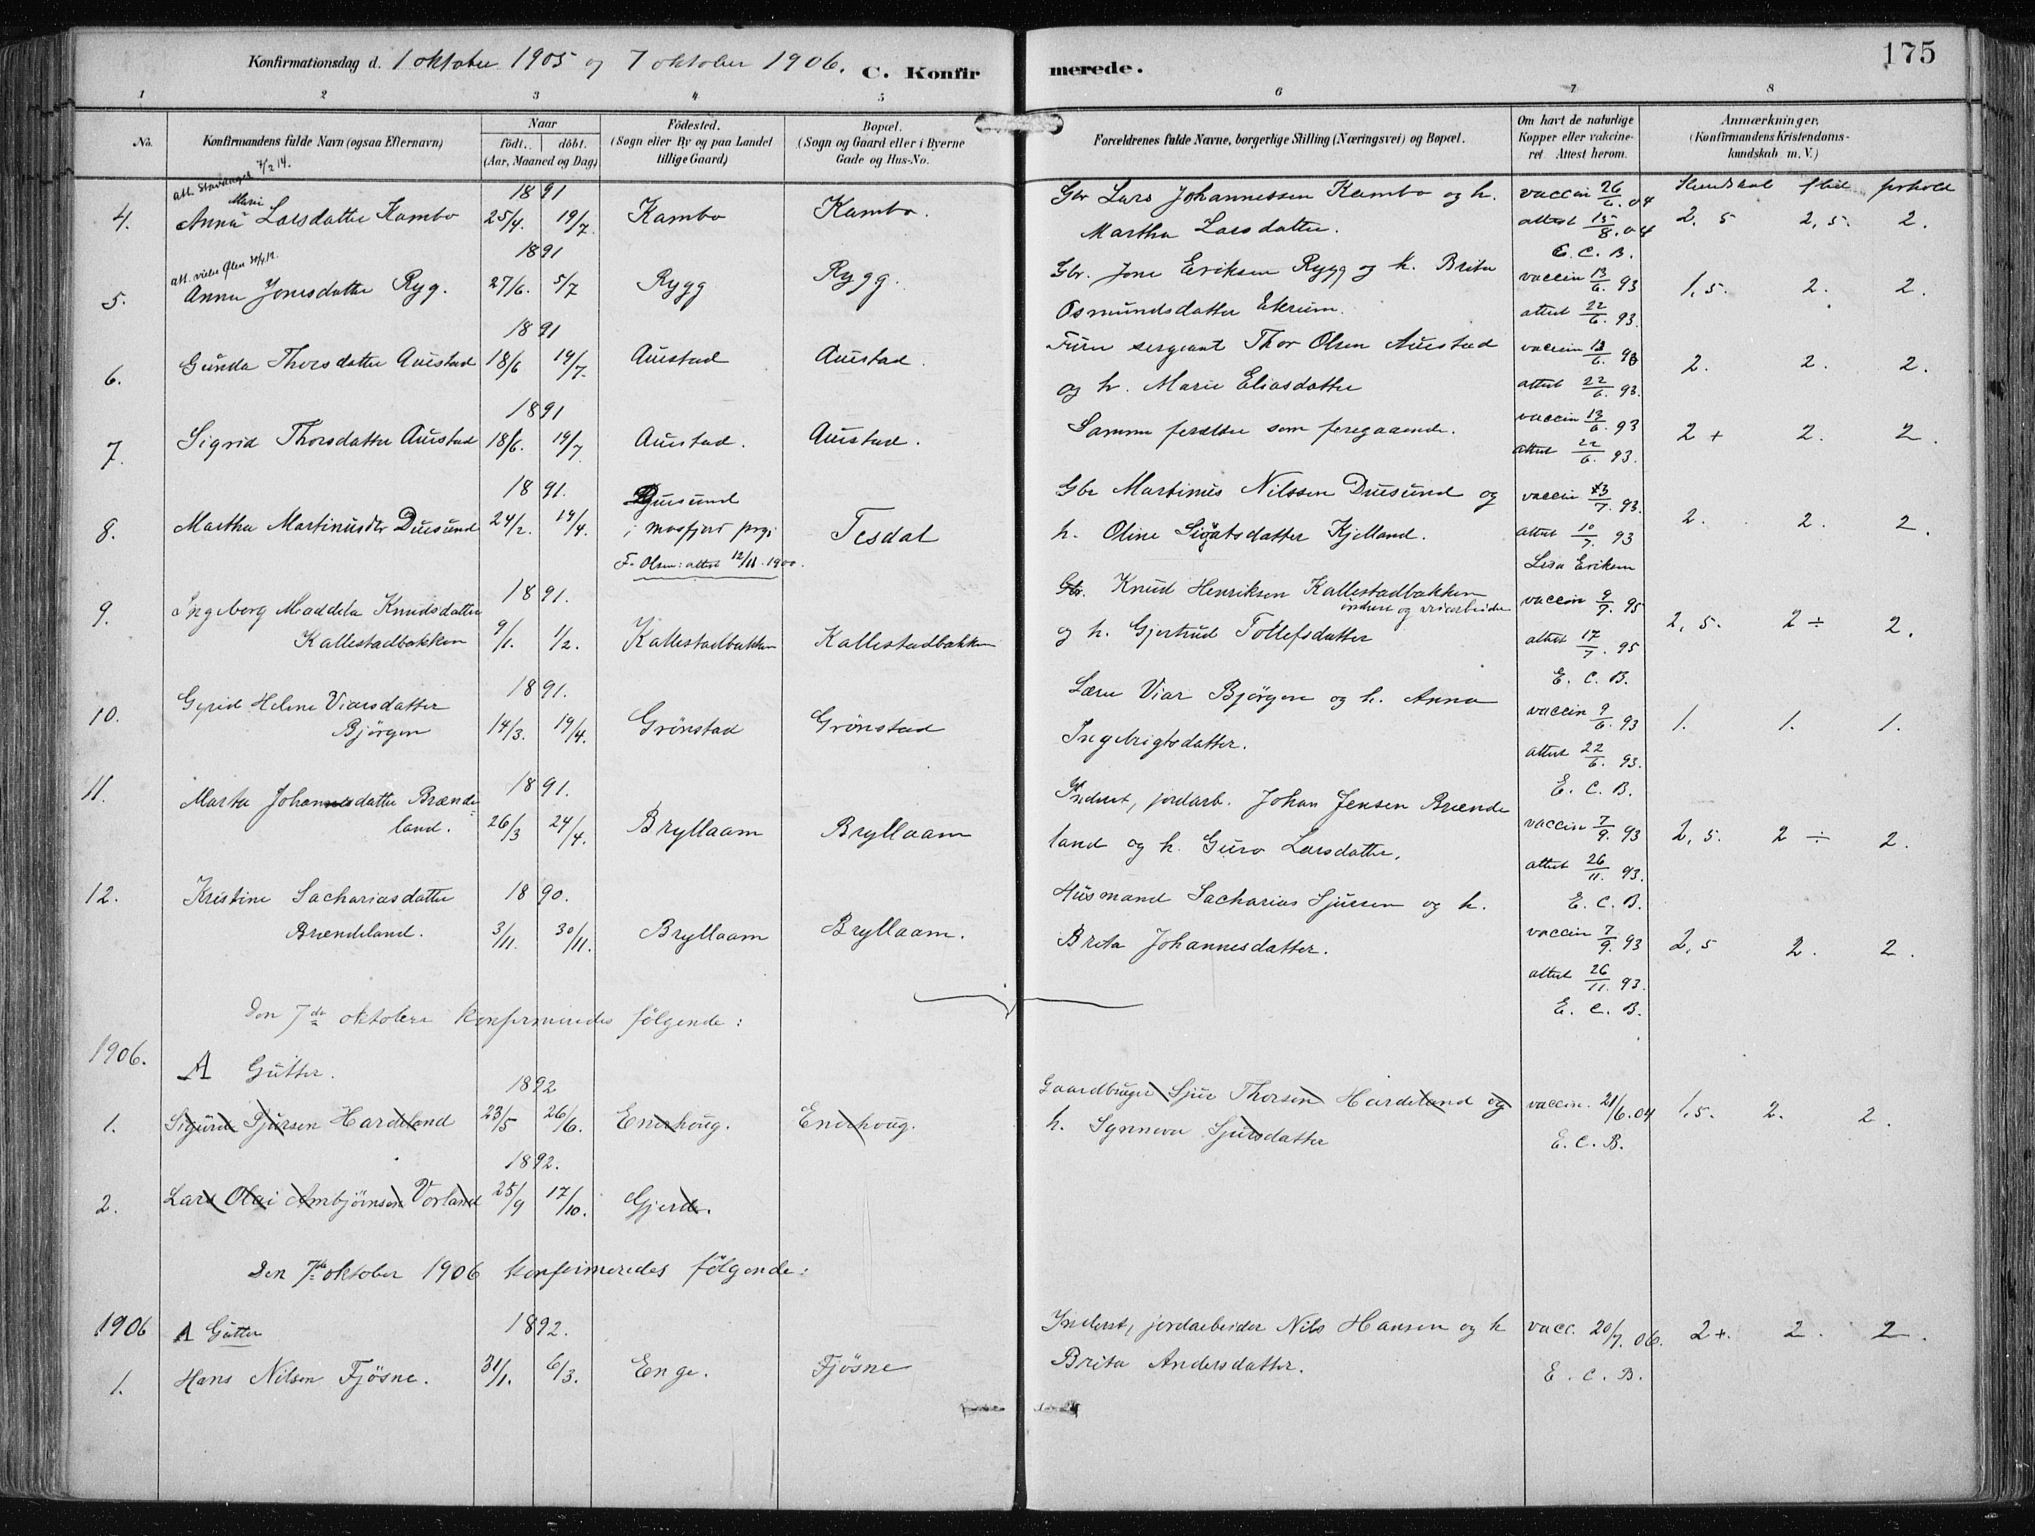 175
Konfirmationsdag d. 1 oktober 1905 og 7 oktober 1906. C. Konfirmerede.
1 2 3 4 5 6 7 8
No. Konfirmandens fulde Navn (ogsaa Efternavn) Naar født. døbt. (Aar, Maaned og Dag) Fødested. (Sogn eller By og paa Landet tillige Gaard) Bopæl. (Sogn og Gaard eller i Byerne Gade og Hus-No. Forældrenes fulde Navne, borgerlige Stilling (Næringsvei) og Bopæl. Om havt de naturlige Kopper eller vakcineret Attest herom. Anmærkninger, (Konfirmandens Kristendomskundskab m. V.)
Kundskab flid forhold
att. Stavanger 7/2 14.
Marie
4. Anna Larsdatter Kambo 1891 25/4. 19/7. Kambo Kambo. Gbr Lars Johannessen Kambo og h. vaccin 26/6. 04 2,5 2,5. 2.
Martha Larsdatter. attest 15/8. 04
E. C. B.
att. vielse Ølen
5. Anna Jonesdatter Ryg. 1891 27/6. 5/7 Rygg Rygg. Gbr. Jone Eriksen Rygg og h. Brita vaccin 13/6. 93 1,5. 2. 2.
Osmundsdatter Ekrum. attest 22/6. 93.
6. Gunda Thorsdatter Austad 1891 18/6 19/7. Austad Austad. Furer sergeant Thor Olsen Austad vaccin 13/6. 93 2. 2. 2.
og h. Marie Eliasdatter attest 22/6. 93.
7. Sigrid Thorsdatter Austad 1891 18/6. 19/7 Austad. Austad. Samme forældre som foregaaende. vaccin 13/6. 93 2+ 2. 2.
attest 22/6. 93.
8. Martha Martinusdtr Duesund 1891. 24/2. 19/4. Duesund Tesdal Gbr Martinus Nilssen Duesund og vaccin 13/7. 93. 2. 2. 2.
i Masfjord prgj. h. Oline Sigvatsdatter Kjelland. attest 10/7. 93
F. Olsen: attest 12/11. 1900. Lisa Eriksen
9. Ingeborg Maddela Knudsdatter 1891. Gbr. Knud Henriksen Kallestadbakken vaccin 9/7. 95 2,5. 2 ÷ 2.
inderst og veiarbeider
Kallestadbakken 9/1. 1/2. Kallestadbakken Kallestadbakken og h. Gjertrud Tollefsdatter attest 17/7. 95
E. C. B.
10. Gyrid Helene Viarsdatter 1891. Lærer Viar Bjørgen og h. Anna vaccin 9/6. 93 1. 1. 1.
Bjørgen 14/3. 19/4. Grønstad Grønstad Ingebrigtsdatter. attest 22/6. 93.
E. C. B.
11. Marta Johannesdatter Brænde- 1891. Inderst, jordarb. Johan Jensen Brænde vaccin 7/9. 93 2,5. 2 ÷ 2.
land. 26/3 24/4. Bryllaam Bryllaam land og h. Guro Larsdatter. attest 26/11. 93.
E. C. B.
12. Kristine Sachariasdatter 1890. Husmand Sacharias Sjursen og h. vaccin 7/9. 93 2,5 2. 2.
Brændeland. 3/11. 30/11. Bryllaam Bryllaam. Brita Johannesdatter. attest 26/11. 93.
E. C. B.
Den 7de oktober konfirmeredes følgende:
1906.
A Gutter.
1. Sigurd Sjursen Hardeland 1892 23/5 26/6. Enerhoug. Enerhoug. Gaardbruger Sjur Thorsen Hardeland og vaccin. 21/6. 04 1,5. 2. 2.
h. Synneva Sjursdatter E. C. B.
2. Lars Olai Ambjørnsen Vorland 1892. 25/9 17/10. Gjerde.
Den 7de oktober 1906 konfirmeredes følgende:
1906 A Gutter 1892. Inderst, jordarbeider Nils Hansen og h vacc. 20/7. 06. 2+. 2. 2.
1. Hans Nilsen Fjøsne. 31/1. 6/3. Enge. Fjøsne Brita Andersdatter. E. C. B.